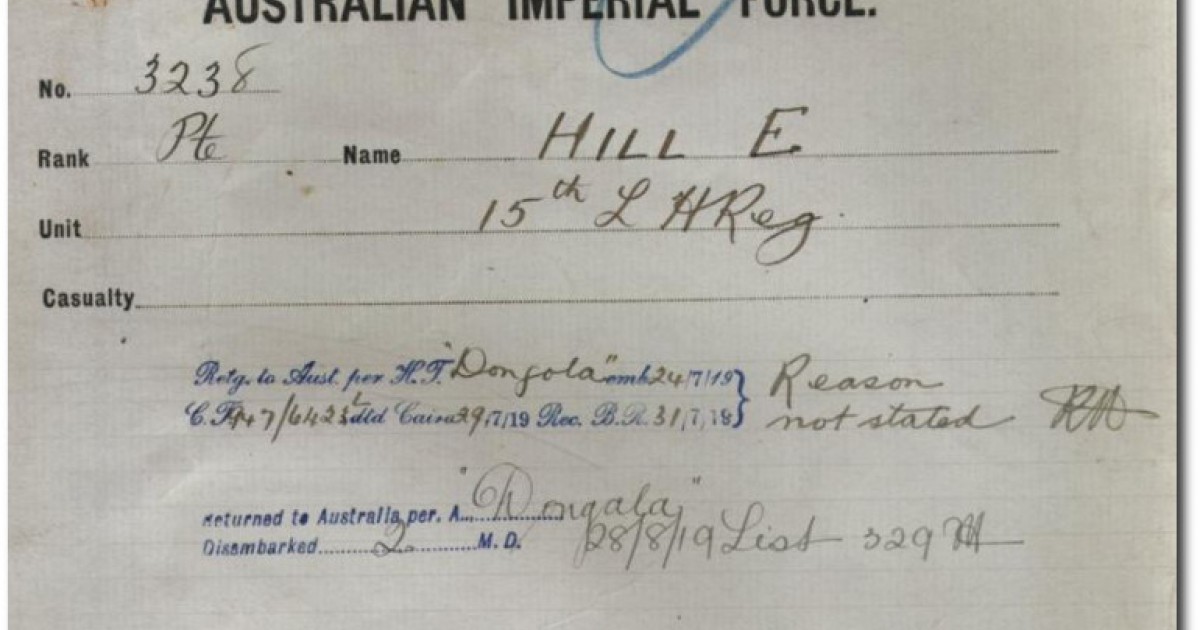 AUSTRALIAN IMPERIAL FORCE.
No. 3238
Rank Pte Name HILL E
Unit 15th L H Reg.
Casualty
Retg. to Aust. per H.T. "Dongola" emb 24/7/19 } Reason
C. dtd Cairo 29/7/19 Rec. B.R. 31/7/19 } not stated
Returned to Australia per. A. "Dongala"
Disembarked 2 M. D. 28/8/19 List 329